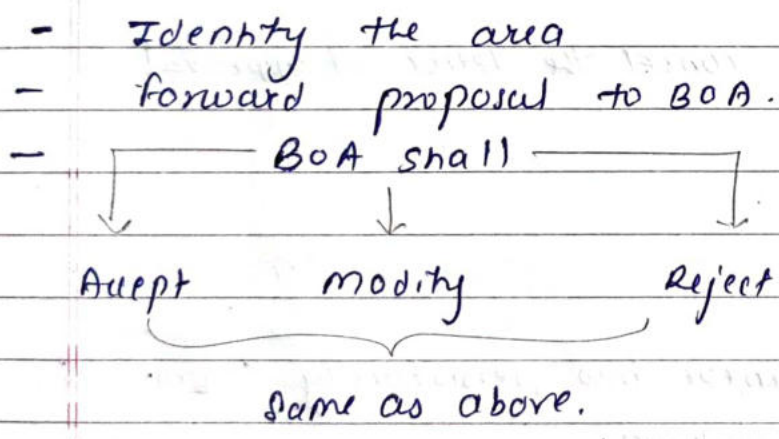 - Identity the area
- forward proposal to BOA.
- BOA shall
Accept Modity Reject
Same as above.